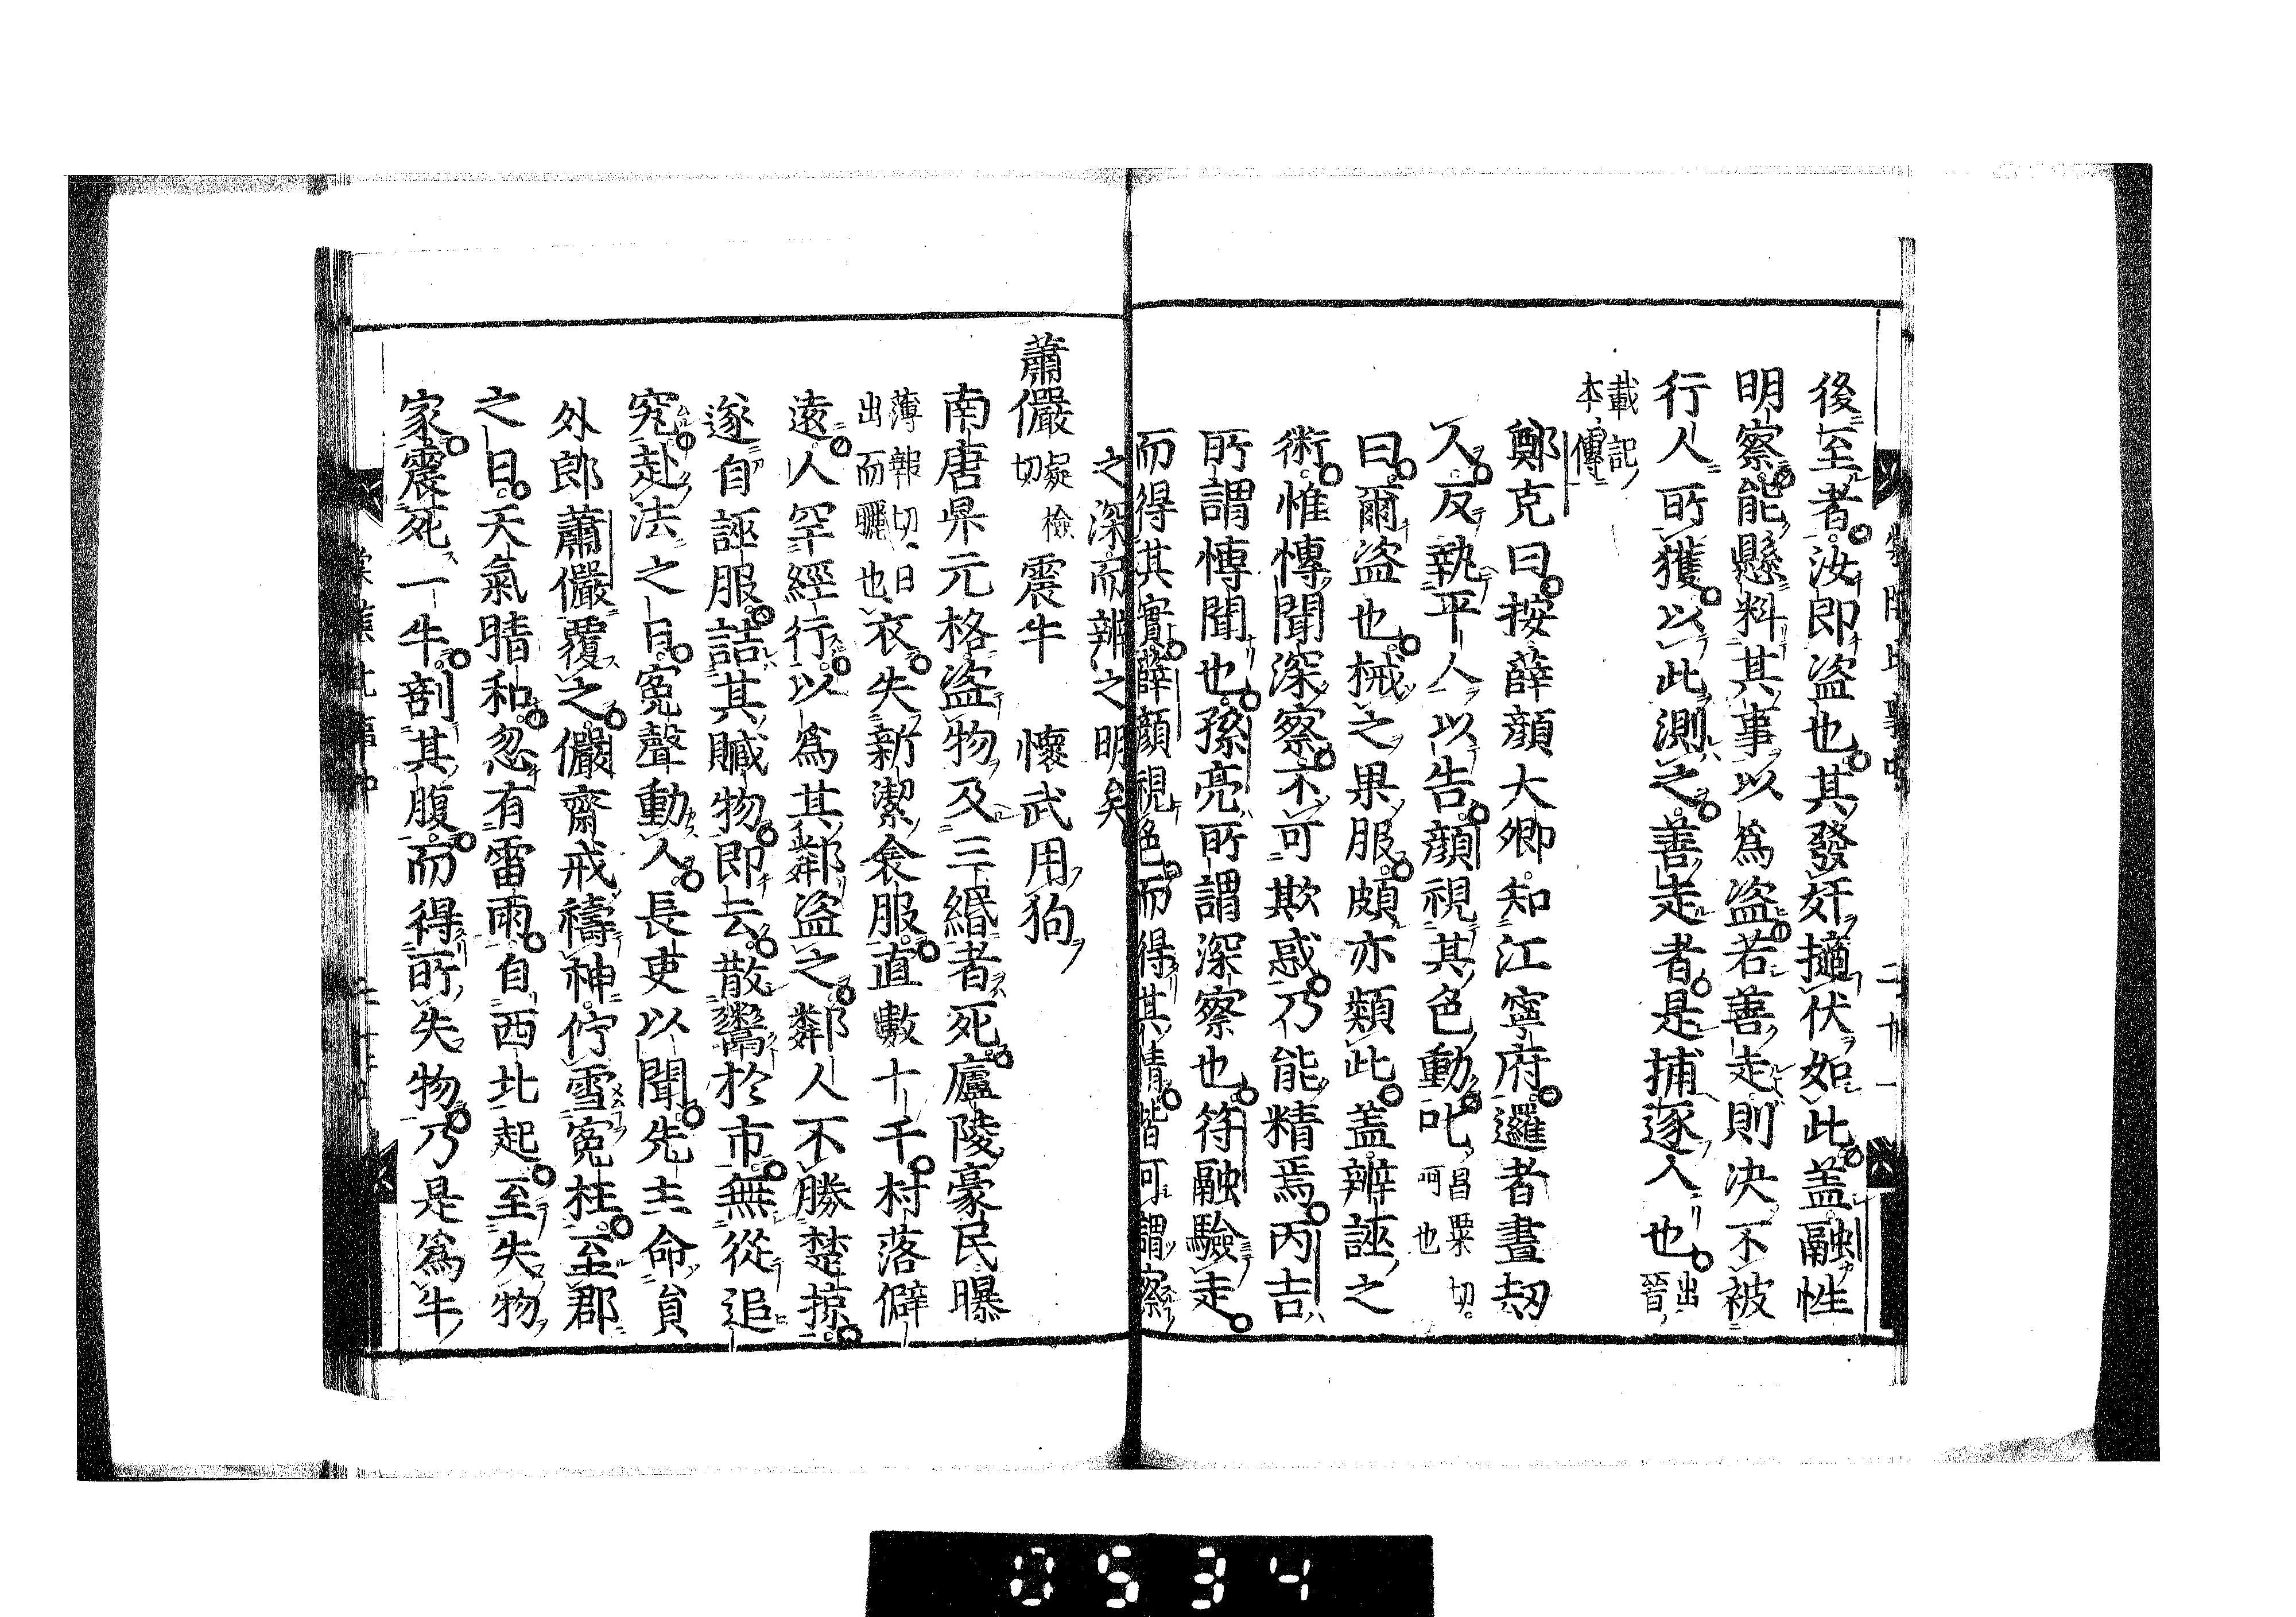 後至者汝即盗也其發奸擿伏如此盖融性
明察能懸料其事以為盗若善走則决不被
行人所獲以此測之善走者是捕逐人也出晉
載記
本傳
鄭克曰按薛顔大卿知江寧府邏者晝刼
人反執平人以告顔視其色動叱昌粟切
呵也
曰爾盗也械之果服頗亦類此盖辨誣之
術惟慱聞深察不可欺惑乃能精焉丙吉
所謂慱聞也孫亮所謂深察也符融驗走
而得其實薛顔視色而得其情皆可謂察
之深而辨之明矣
蕭儼𡰥檢
切 震牛 懷武用狗
南唐昇元格盗物及三緡者死廬陵豪民曝
薄報切日
出而曬也衣失新潔衾服直數十千村落僻
遠人罕經行以為其鄰盗之鄰人不勝楚掠
遂自誣服詰其贓物即云散鬻於市無從追
究赴法之日寃聲動人長吏以聞先主命貟
外郎蕭儼覆之儼齋戒禱神佇雪寃枉至郡
之日天氣晴和忽有雷雨自西北起至失物
家震死一牛剖其腹而得所失物乃是為牛
0534